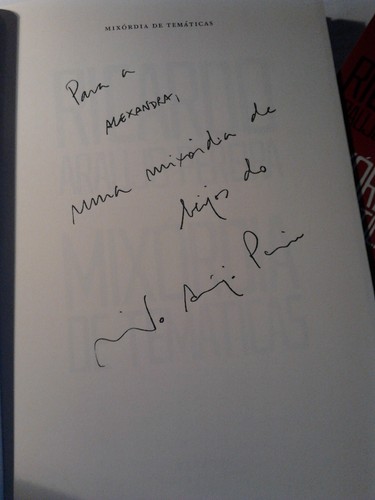 MIXÓRDIA DE TEMÁTICAS
Para a
ALEXANDRA,
numa mixórdia de
beijos do